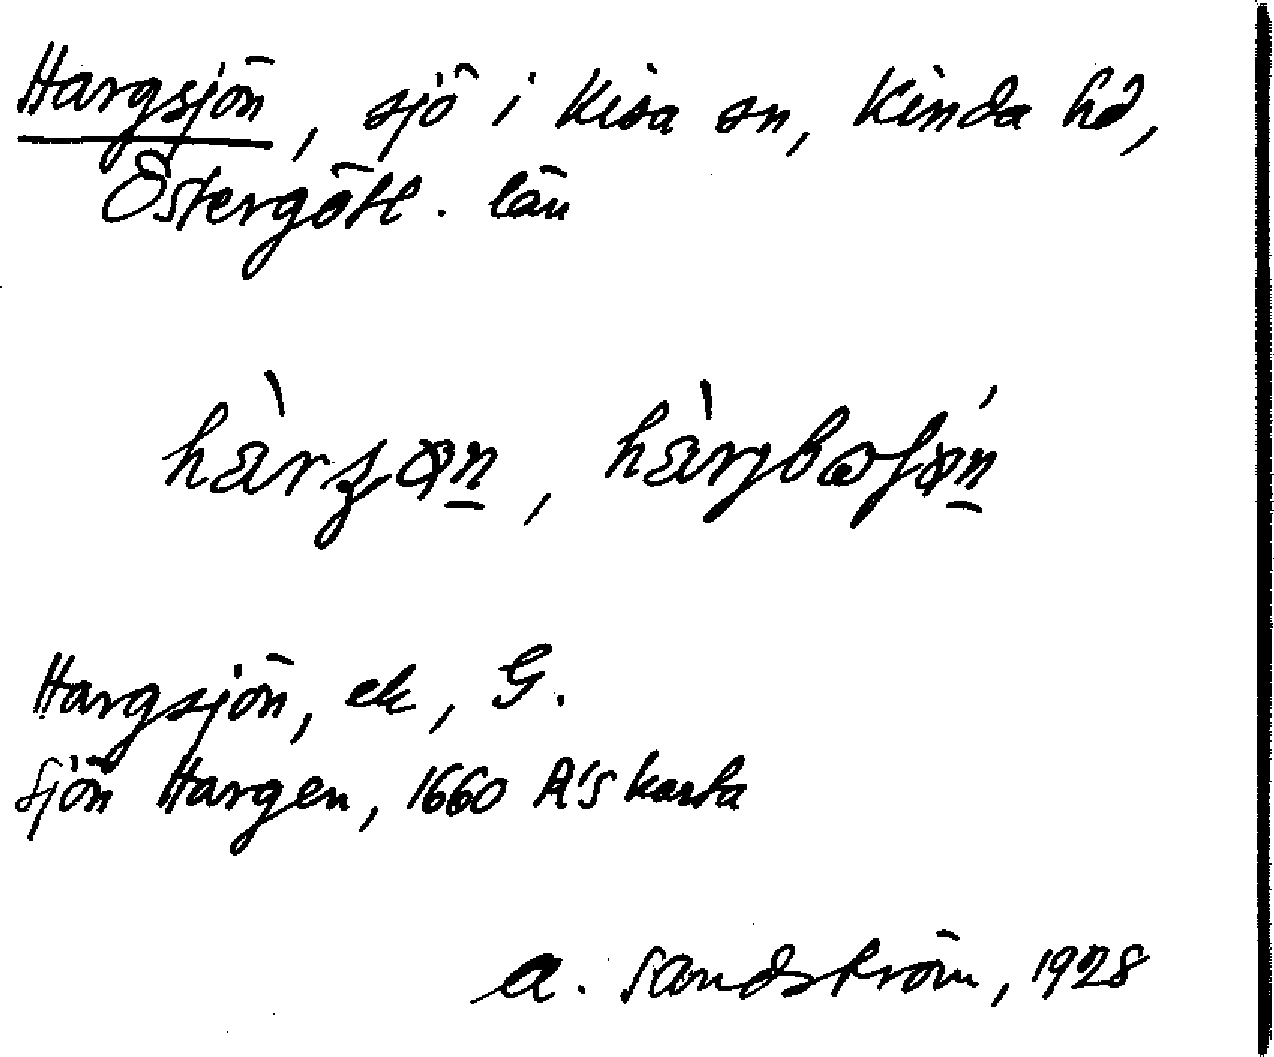 Hargsjön, sjö i Kisa sn, Kinda hd,
Östergötl. län
Hargsjön, ek, G.
Sjön Hargen, 1660 A's karta
A. Sandström, 1928